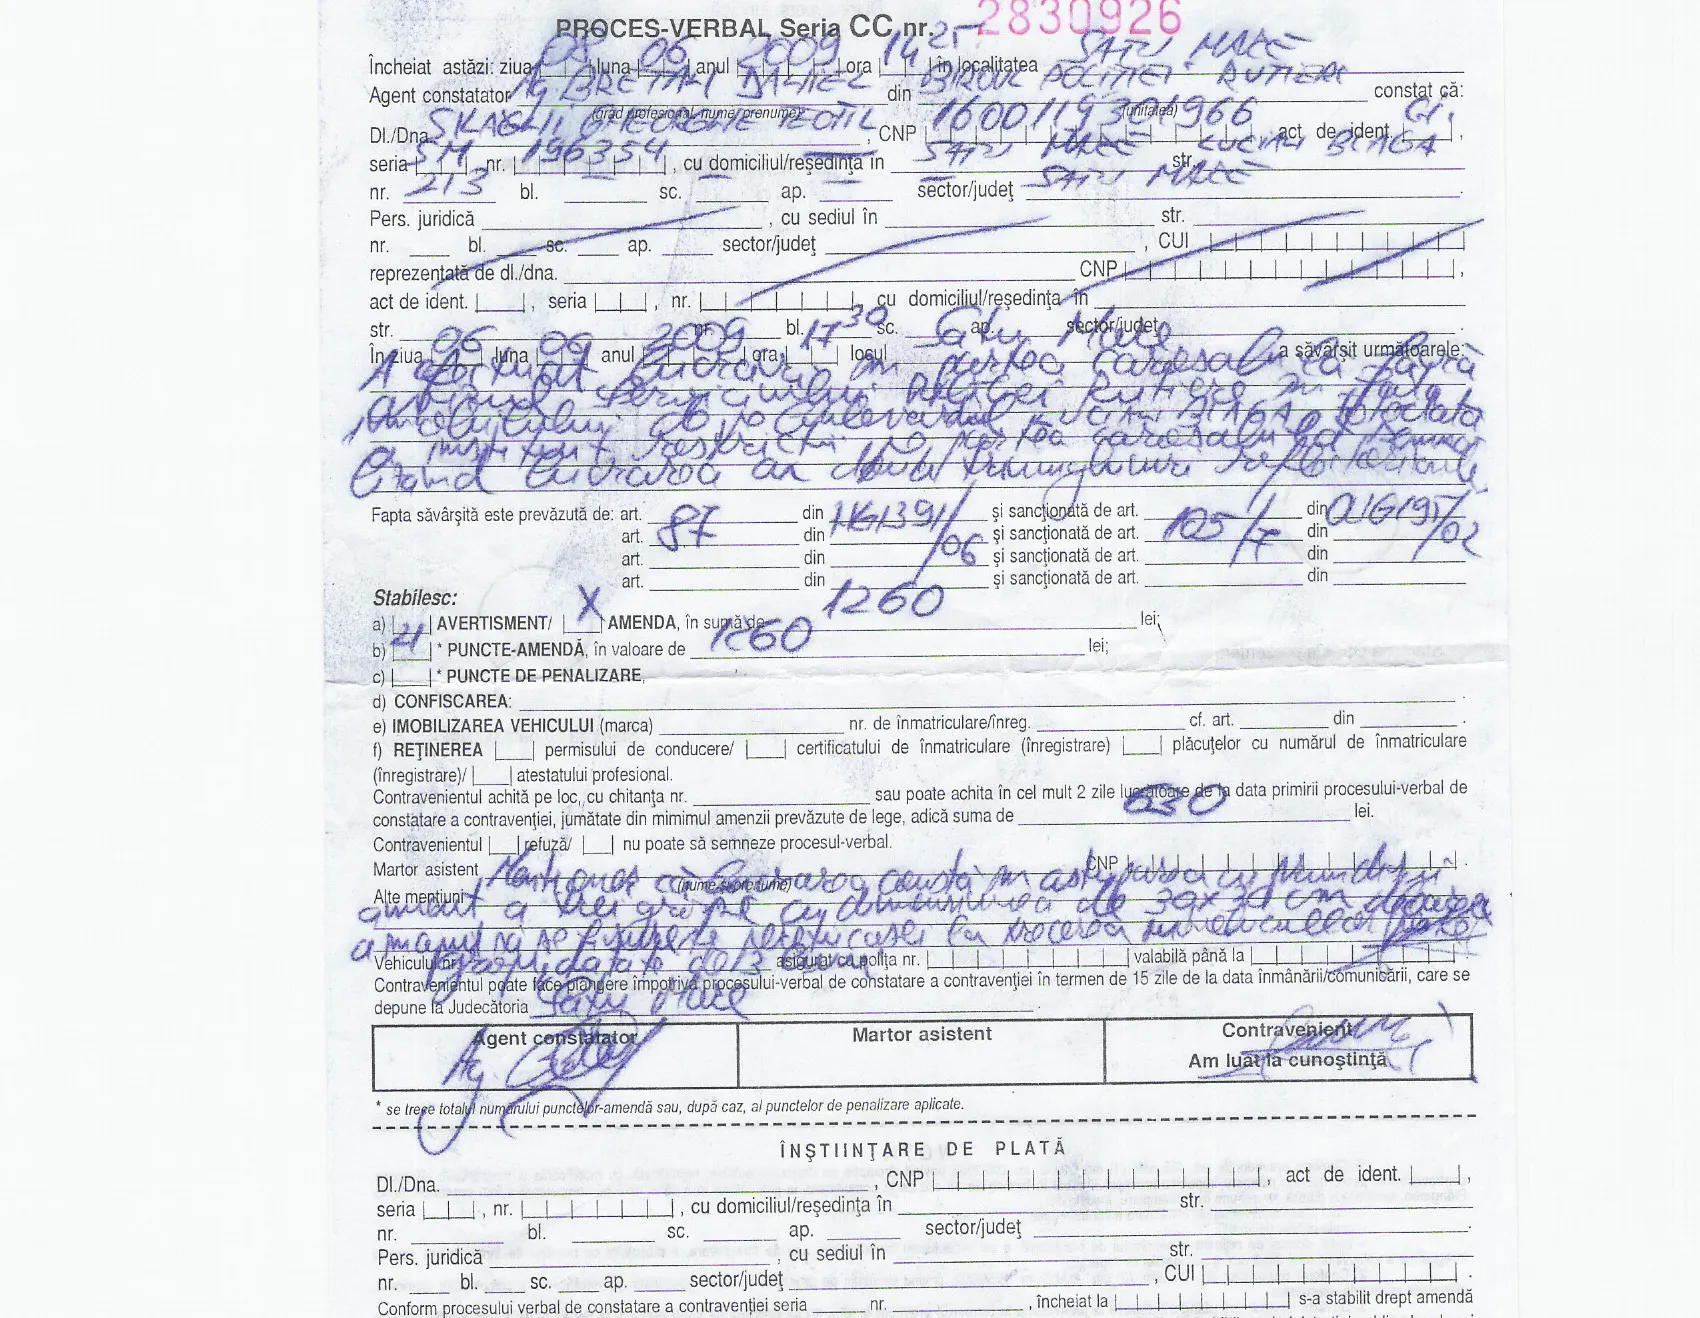 PROCES-VERBAL Seria CC nr. 2830926
Încheiat astăzi: ziua 08 luna 06 anul 2009 ora 14 25 în localitatea SATU MARE
Agent constatator Ag. BRETAN DANIEL din BIROUL POLITIEI RUTIERE constat că:
(grad profesional, nume/prenume) (unitatea)
Dl./Dna. GHEORGHE TEOFIL, CNP 1600119301966 act de ident. CI,
seria SM nr. 196354, cu domiciliul/reşedinţa în SATU MARE str. LUCIAN BLAGA
nr. 213 bl. — sc. — ap. — sector/judeţ SATU MARE
Pers. juridică , cu sediul în str.
nr. bl. sc. ap. sector/judeţ , CUI
reprezentată de dl./dna. CNP ,
act de ident. , seria , nr. , cu domiciliul/reşedinţa în
str. nr. bl. sc. ap. sector/judeţ .
În ziua 06 luna anul 2009 ora 17 30 locul Satu Mare a săvârşit următoarele:
A efectuat lucrari in partea carosabila fără
avizul serviciului Politiei Rutiere in fata
imobilului de pe bulevardul Totodata
a instituit restrictii pe partea carosabila
lucrarea cu triunghiuri reflectorizante
Fapta săvârşită este prevăzută de: art. 87 din HG 1391/06 şi sancţionată de art. 105/7 din OUG 195/02
art. din şi sancţionată de art. din
art. din şi sancţionată de art. din
art. din şi sancţionată de art. din
Stabilesc:
a) AVERTISMENT/ X AMENDA, în sumă de 1260 lei;
b) 21 * PUNCTE-AMENDĂ, în valoare de 1260 lei;
c) * PUNCTE DE PENALIZARE,
d) CONFISCAREA: .
e) IMOBILIZAREA VEHICULUI (marca) nr. de înmatriculare/înreg. cf. art. din .
f) REŢINEREA permisului de conducere/ certificatului de înmatriculare (înregistrare) plăcuţelor cu numărul de înmatriculare
(înregistrare)/ atestatului profesional.
Contravenientul achită pe loc, cu chitanţa nr. sau poate achita în cel mult 2 zile lucrătoare de la data primirii procesului-verbal de
constatare a contravenţiei, jumătate din mimimul amenzii prevăzute de lege, adică suma de 630 lei.
Contravenientul refuză/ nu poate să semneze procesul-verbal.
Martor asistent CNP .
(nume şi prenume)
Alte menţiuni Mentionez că lucrarea consta in
a trei gropi cu dimensiunea de 30x30 cm
la trecerea
Vehiculul nr. asigurat cu poliţa nr. valabilă până la
Contravenientul poate face plângere împotriva procesului-verbal de constatare a contravenţiei în termen de 15 zile de la data înmânării/comunicării, care se
depune la Judecătoria Satu Mare.
Agent constatator Martor asistent Contravenient
Ag. Am luat la cunoştinţă
* se trece totalul numărului punctelor-amendă sau, după caz, al punctelor de penalizare aplicate.
ÎNŞTIINŢARE DE PLATĂ
Dl./Dna. , CNP , act de ident. ,
seria , nr. , cu domiciliul/reşedinţa în str.
nr. bl. sc. ap. sector/judeţ .
Pers. juridică , cu sediul în str.
nr. bl. sc. ap. sector/judeţ , CUI .
Conform procesului verbal de constatare a contravenţiei seria nr. , încheiat la s-a stabilit drept amendă